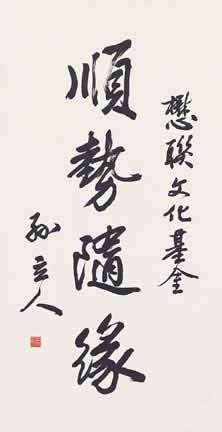 懋聯文化基金
順勢隨緣
孫立人